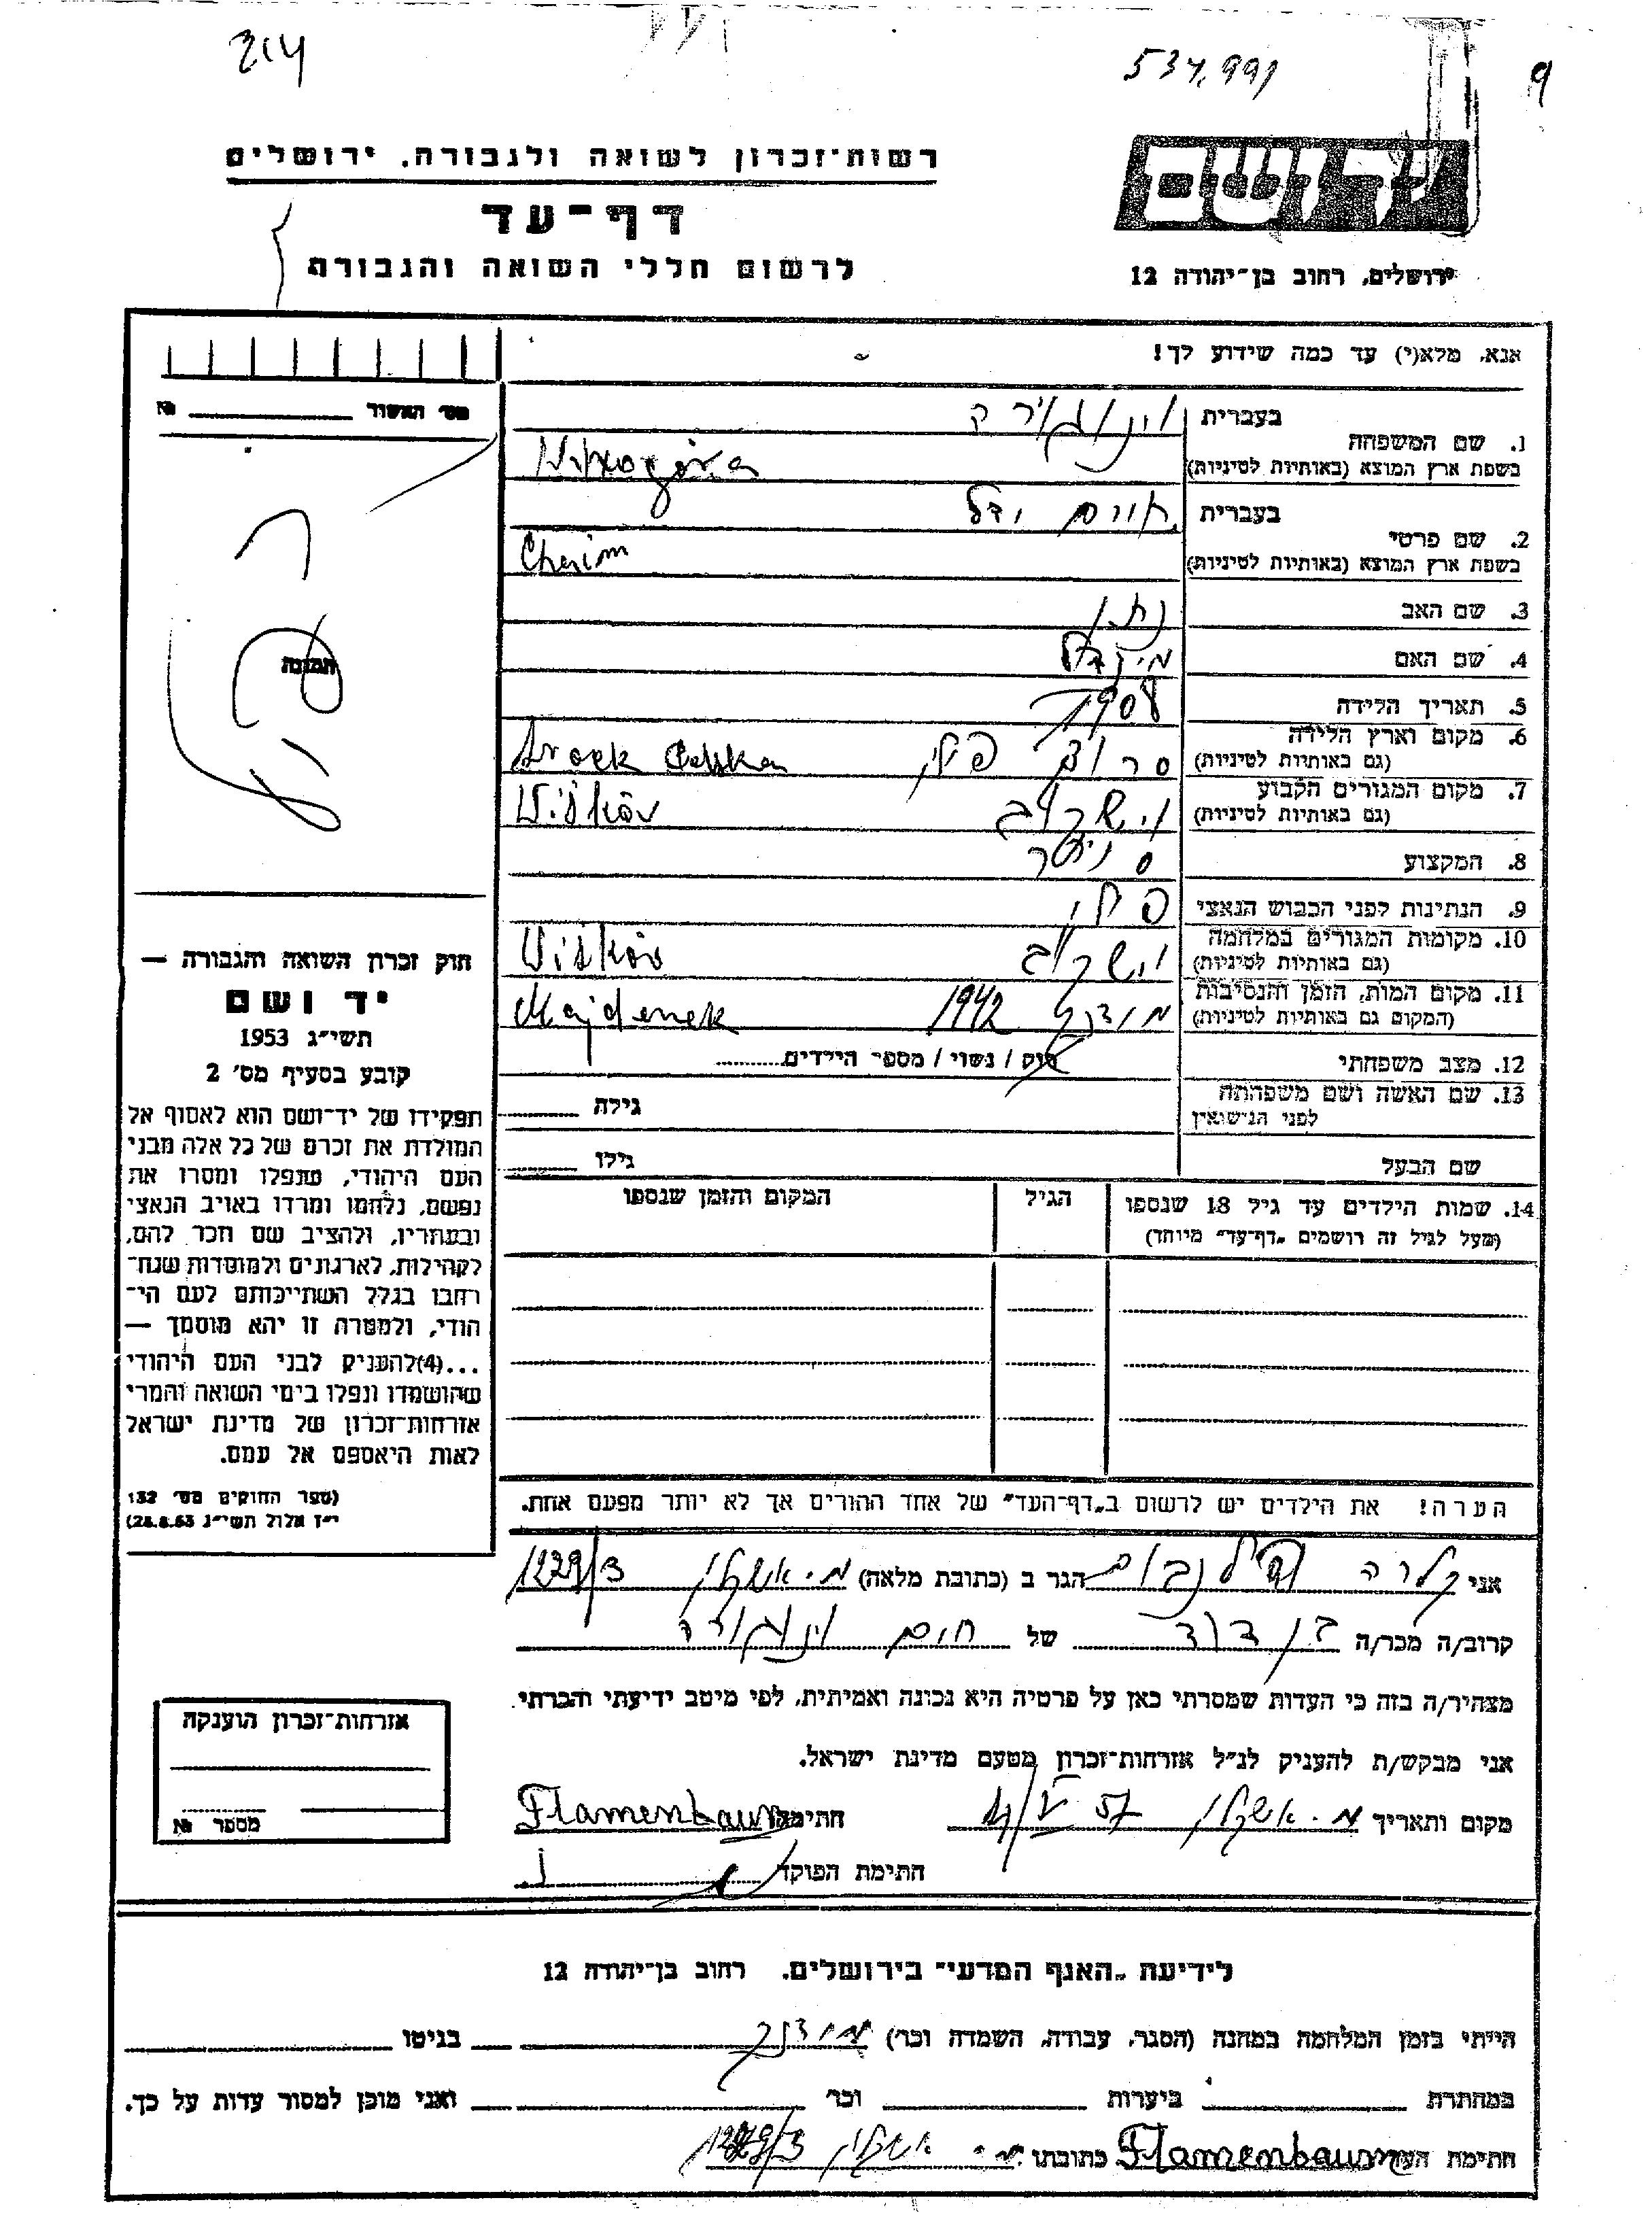 214
534,991
9
רשות־זכרון לשואה ולגבורה, ירושלים
יד ושם
דף־עד
לרשום חללי השואה והגבורה
ירושלים, רחוב בן־יהודה 12
אנא, מלא(י) עד כמה שידוע לך!
מס׳ האשור № 
1. שם המשפחה
בעברית וינוגורה
בשפת ארץ המוצא (באותיות לטיניות)
2. שם פרטי
בעברית חיים יודל
בשפת ארץ המוצא (באותיות לטיניות) Chaim
3. שם האב נתן
4. שם האם מינדל
5. תאריך הלידה 1908
6. מקום וארץ הלידה
(גם באותיות לטיניות) סרוצק פולין
7. מקום המגורים הקבוע
(גם באותיות לטיניות) וישקוב Wiśków
8. המקצוע
9. הנתינות לפני הכבוש הנאצי פולני
10. מקומות המגורים במלחמה
(גם באותיות לטיניות) וישקוב Wiśków
11. מקום המות, הזמן והנסיבות
(המקום גם באותיות לטיניות) מידנק 1942 Majdenek
12. מצב משפחתי רוק / נשוי / מספר הילדים
13. שם האשה ושם משפחתה
לפני הנישואין
גילה
שם הבעל
גילו
14. שמות הילדים עד גיל 18 שנספו
(מעל לגיל זה רושמים „דף־עד״ מיוחד)
הגיל
המקום והזמן שנספו
הערה! את הילדים יש לרשום ב„דף־העד״ של אחד ההורים אך לא יותר מפעם אחת.
התמונה
חוק זכרון השואה והגבורה —
יד ושם
תשי״ג 1953
קובע בסעיף מס׳ 2
תפקידו של יד־ושם הוא לאסוף אל
המולדת את זכרם של כל אלה מבני
העם היהודי, שנפלו ומסרו את
נפשם, נלחמו ומרדו באויב הנאצי
ובעוזריו, ולהציב שם וזכר להם,
לקהילות, לארגונים ולמוסדות שנח־
רבו בגלל השתייכותם לעם הי־
הודי, ולמטרה זו יהא מוסמך —
...(4)להעניק לבני העם היהודי
שהושמדו ונפלו בימי השואה והמרי
אזרחות־זכרון של מדינת ישראל
לאות היאספם אל עמם.
(ספר החוקים מס׳ 132
י״ז אלול תשי״ג 28.8.53)
אני קלרה פלמנבוים הגר ב (כתובת מלאה) מ. אשקלון 1229/3
קרוב/ה מכר/ה בן דוד של חיים וינוגורה
מצהיר/ה בזה כי העדות שמסרתי כאן על פרטיה היא נכונה ואמיתית, לפי מיטב ידיעתי והכרתי.
אני מבקש/ת להעניק לנ״ל אזרחות־זכרון מטעם מדינת ישראל.
מקום ותאריך מ. אשקלון 57 חתימה Flamenbaum
חתימת הפוקד
אזרחות־זכרון הוענקה
מספר №
לידיעת „האגף המדעי״ בירושלים, רחוב בן־יהודה 12
הייתי בזמן המלחמה במחנה (הסגר, עבודה, השמדה וכר׳) מידנק בגיטו
במחתרת ביערות וכר׳ ואני מוכן למסור עדות על כך.
חתימת העד Flamenbaum כתובתו מ. אשקלון 1229/3